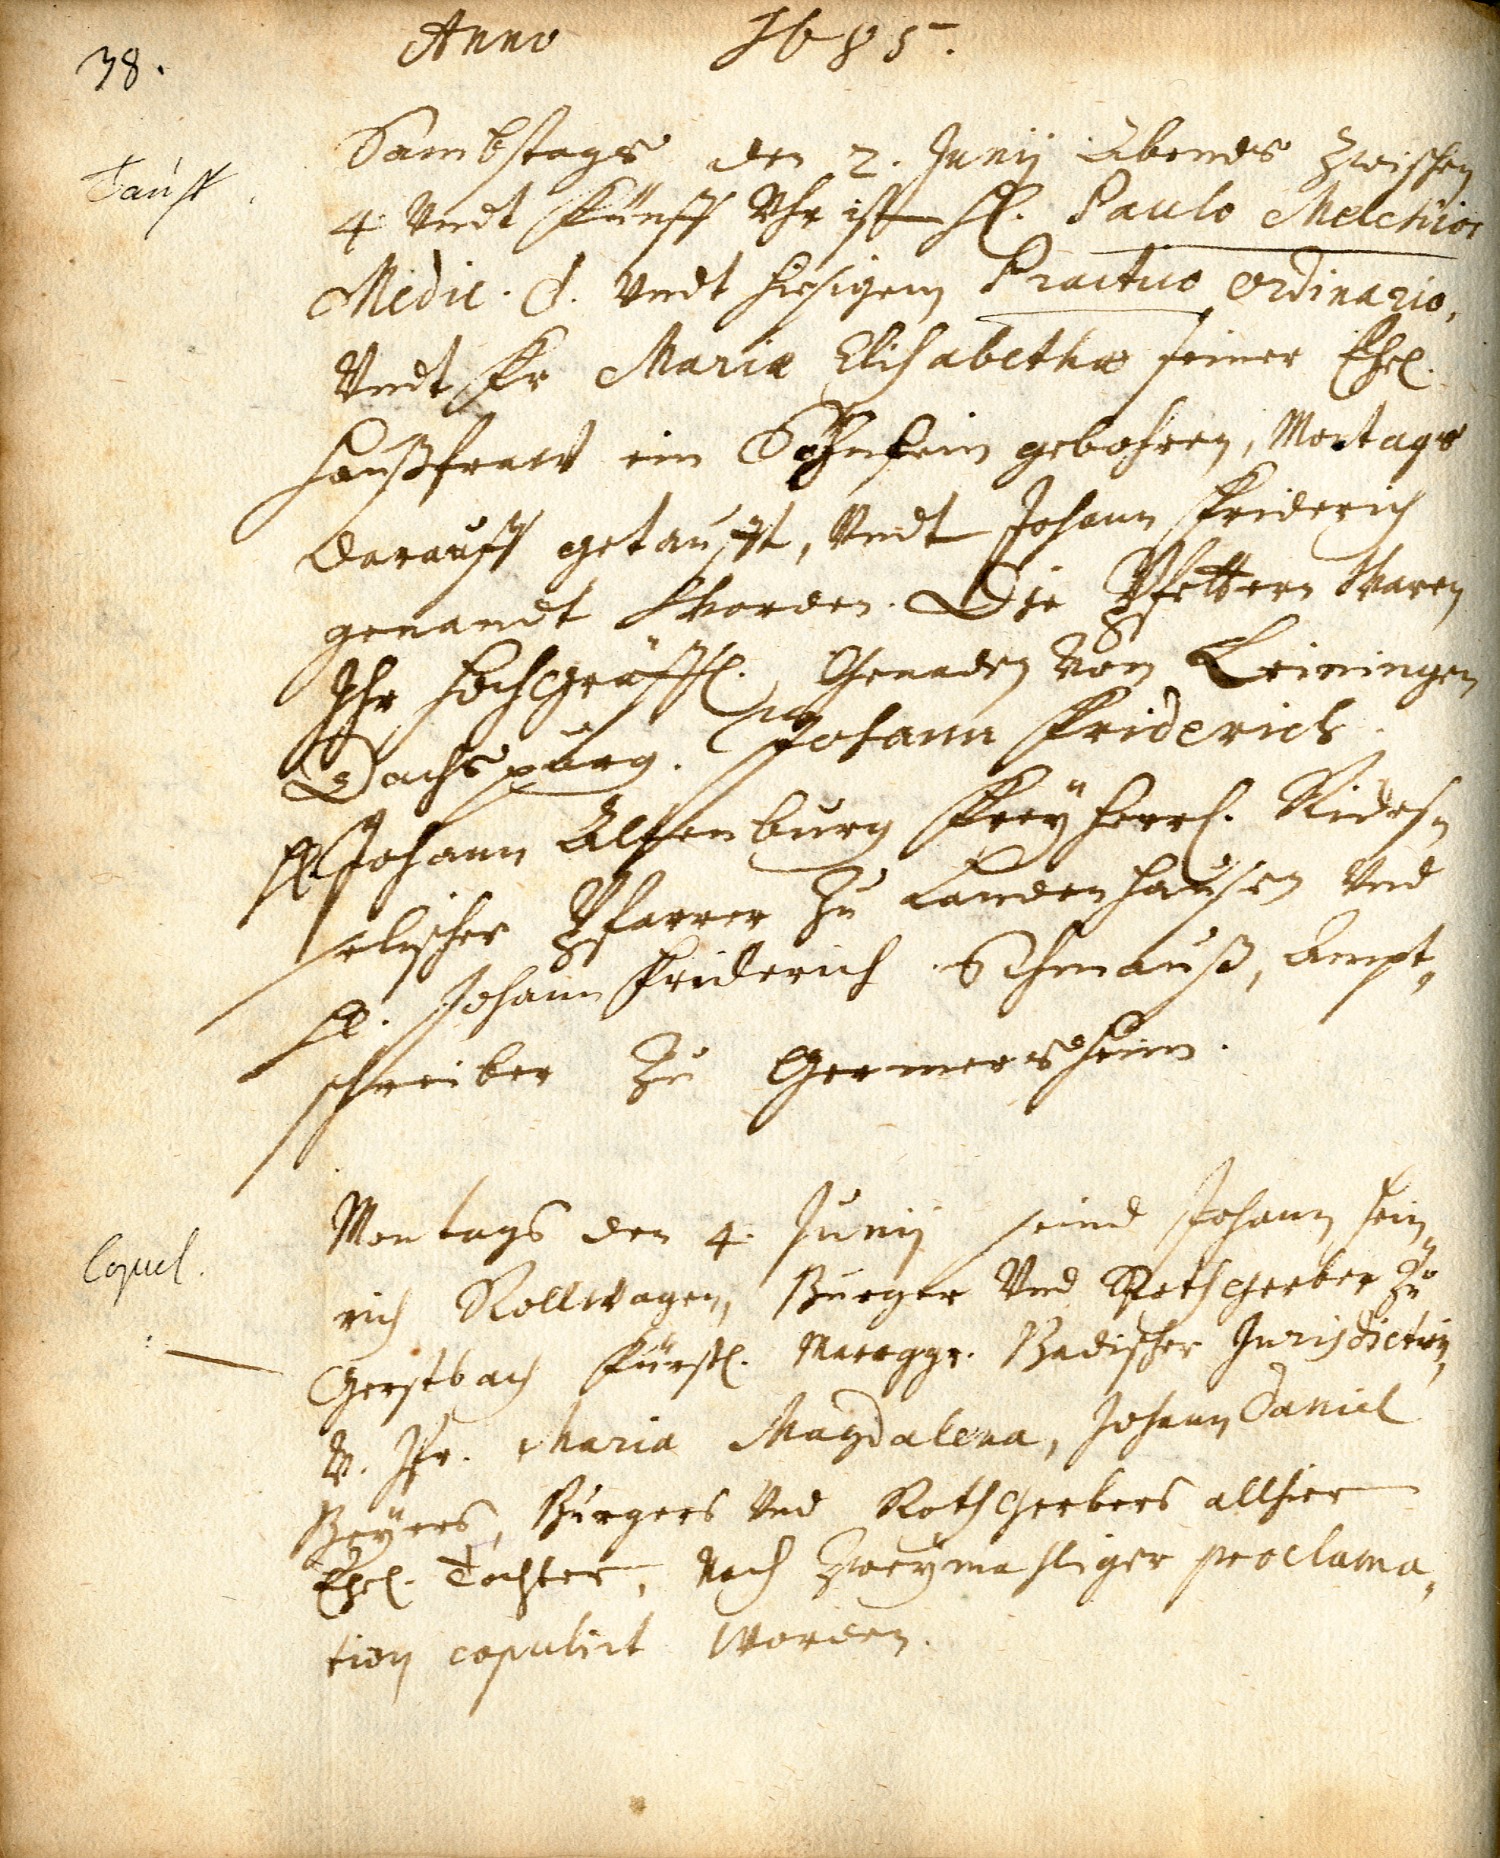 38.
Anno 1685.
Tauff
Sambstags den 2. Junij Abends zwischen
4 Undt fünff Uhr ist Hl. Paulo Melchior
Medic. d. Undt hiesigem Practico ordinario,
Undt Fr Mariæ Elisabethæ seiner Ehel.
haußfraw ein Söhnlein gebohren, Montags
darauff getaufft, Undt Johann Friderich
genandt Worden. Die Pfettern Waren
Ihr HochGräffl. Genaden Von Leiningen
Dachspurg. Johann Friderich.
Hl. Johann Altenburg FreyHerrl. Rides„
elischer Pfarrer zu Landenhausen Und
Hl. Johann Friderich Schmauß, Ampt„
schreiber zu Germersheim.
Copul.
Montags den 4. Junij seind Johann Hein„
rich Rollwagen, Burger Und RothGerber zu
Gerstbach Fürstl. Marggr. Badischer Jurisdiction,
V. Jfr. Maria Magdalena, Johann Daniel
Beyers, Burgers Und RothGerbers allhier
Ehel. Tochter, Nach Zweymahliger proclama„
tion copulirt Worden.